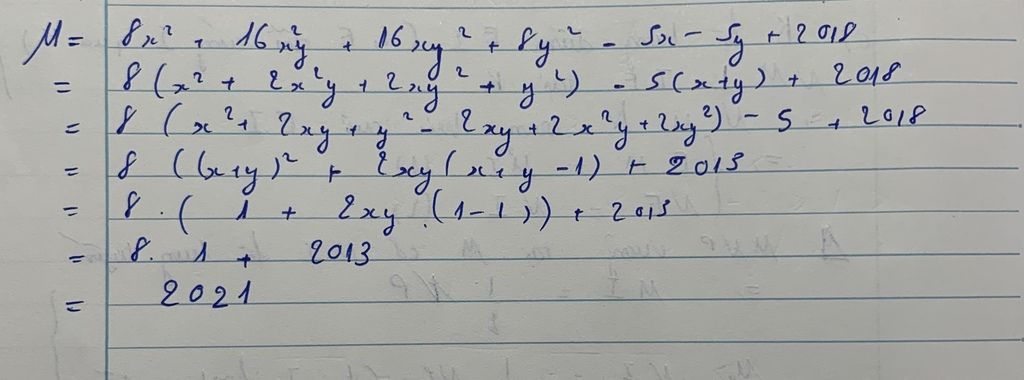 M = 8x² + 16x²y + 16xy² + 8y² - 5x - 5y + 2018
= 8(x² + 2x²y + 2xy² + y²) - 5(x+y) + 2018
= 8 (x² + 2xy + y² - 2xy + 2x²y + 2xy²) - 5 + 2018
= 8 ((x+y)² + 2xy(x+y-1) + 2013
= 8 . ( 1 + 2xy.(1-1)) + 2013
= 8. 1 + 2013
= 2021